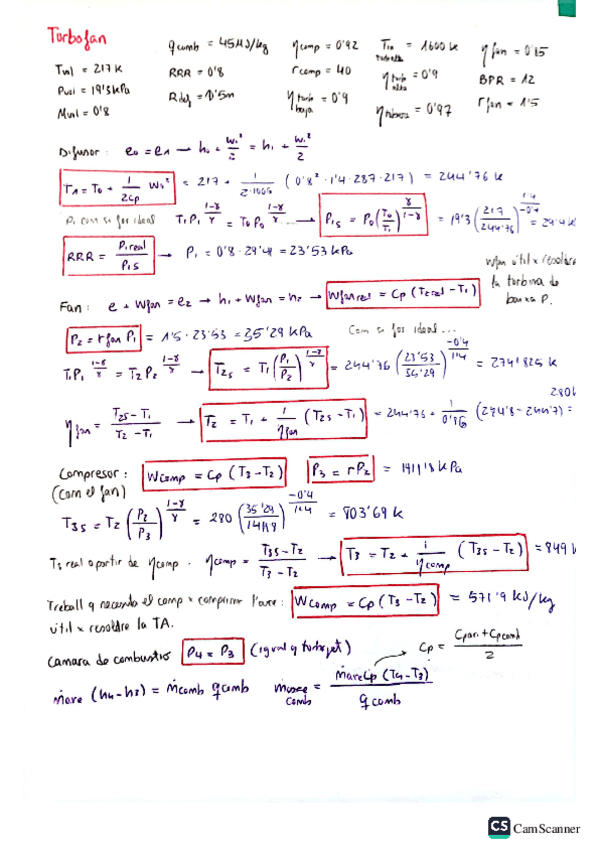 Turbofan
qcomb = 45MJ/kg   ηcomp = 0'92   Tin turbalta = 1600 K   η fan = 0'85
Tvol = 217 K   RRR = 0'8   rcomp = 40   η turb alta = 0'9   BPR = 12
Pvol = 19'3 kPa   η turb baja = 0'9   ηtobera = 0'97   rfan = 1'5
Mvol = 0'8
Difusor : e0 = e1 → h0 + w0²/2 = h1 + w1²/2
T1 = T0 + 1/2cp w0² = 217 + 1/2·1005 (0'8² · 1'4 · 287 · 217) = 244'76 K
P1 com si fos ideal   T1P1^(1-γ/γ) = T0P0^(1-γ/γ) ... → P1s = P0 (T0/T1)^(γ/1-γ) = 19'3 (217/244'76)^(1'4/-0'4) =
RRR = P1real/P1s → P1 = 0'8 · 29'41 = 23'53 kPa
Wfan útil x resoldre la turbina de baixa P.
Fan : e1 + Wfan = e2 → h1 + Wfan = h2 → Wfanreal = Cp (T2real - T1)
P2 = rfan P1 = 1'5 · 23'53 = 35'29 kPa   Com si fos ideal ...
T1P1^(1-γ/γ) = T2P2^(1-γ/γ) → T2s = T1 (P1/P2)^(1-γ/γ) = 244'76 (23'53/35'29)^(-0'4/1'4) = 274'825 K
ηfan = T2s - T1/T2 - T1 → T2 = T1 + 1/ηfan (T2s - T1) = 244'76 + (274'8 - 244'7) = 280K
Compresor : Wcomp = Cp (T3 - T2)   P3 = rP2 = 1411'8 kPa
(Com el fan)
T3s = T2 (P2/P3)^(1-γ/γ) = 280 (35'29/1411'8)^(-0'4/1'4) = 803'69 K
T3 real a partir de ηcomp . ηcomp = T3s - T2/T3 - T2 → T3 = T2 + 1/ηcomp (T3s - T2) = 849
Treball q necesita el comp x comprimir l'aire : Wcomp = Cp (T3 - T2) = 571'9 kJ/kg
útil x resoldre la TA.
Camara de combustió P4 = P3 (igual q turbojet)   Cp = Cpair + Cpcomb/2
ṁaire (h4 - h3) = ṁcomb qcomb   ṁcomb = ṁaire Cp (T4 - T3)/qcomb
CS CamScanner